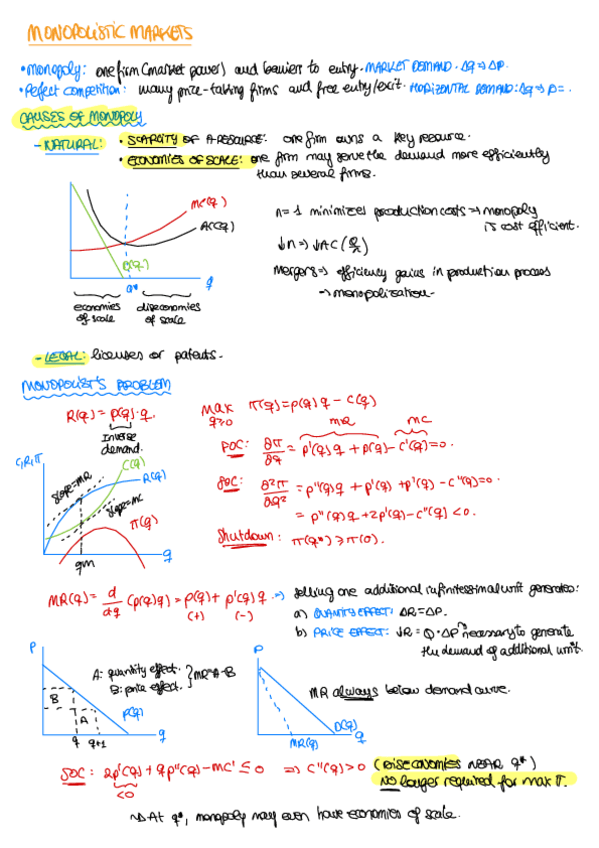 MONOPOLISTIC MARKETS
• Monopoly: one firm (market power) and barriers to entry. MARKET DEMAND. Δq ⇒ Δp.
• Perfect competition: many price-taking firms and free entry/exit. HORIZONTAL DEMAND: Δq ⇒ p=.
CAUSES OF MONOPOLY
- NATURAL: • SCARCITY OF A RESOURCE: one firm owns a key resource.
• ECONOMIES OF SCALE: one firm may serve the demand more efficiently
than several firms.
MC(q)
AC(q)
D(q)
q
economies of scale
diseconomies of scale
n=1 minimizes production costs → monopoly
is cost efficient.
↓n ⇒ ↓AC
Mergers ⇒ efficiency gains in production process
→ monopolization.
- LEGAL: licenses or patents.
MONOPOLIST'S PROBLEM
R(q) = p(q)·q.
Inverse
demand.
max π(q) = p(q)q - C(q)
q≥0
MR MC
FOC: ∂π/∂q = p'(q)q + p(q) - C'(q) = 0.
SOC: ∂²π/∂q² = p''(q)q + p'(q) + p'(q) - C''(q) = 0
= p''(q)q + 2p'(q) - C''(q) < 0.
Shutdown: π(qm) ≥ π(0).
C,R,π
slope=MR
C(q)
R(q)
slope=MC
π(q)
qm
q
MR(q) = d/dq (p(q)q) = p(q) + p'(q)q ⇒ selling one additional infinitessimal unit generates:
(+) (-)
a) QUANTITY EFFECT: ΔR = Δp.
b) PRICE EFFECT: ↓R = Q·Δp necessary to generate
the demand of additional unit.
P
B
A
P(q)
q q+1
q
A: quantity effect.
B: price effect.
} MR=A-B
P
MR(q)
D(q)
q
MR always below demand curve.
SOC: 2p'(q) + qp''(q) - MC' ≤ 0 ⇒ C''(q) > 0 (DISECONOMIES NEAR q*)
<0
No longer required for max π.
→ At q*, monopoly may even have economies of scale.